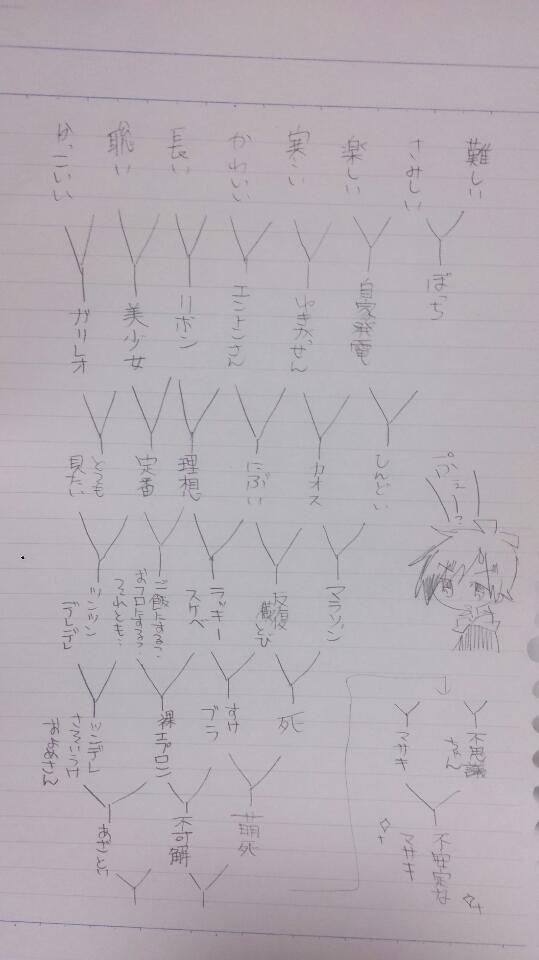 難しい
さみしい
楽しい
寒い
かわいい
長い
聡い
かっこいい
ぼっち
自家発電
ゆきがっせん
エントンさん
リボン
美少女
ガリレオ
しんどい
カオス
にぶい
理想
定番
とても
見たい
マラソン
反復
横とび
ラッキー
スケベ
ご飯にする?
おフロにする?
それとも…
ツンツン
デレデレ
死
すけ
ブラ
裸エプロン
ツンデレ
萌死
不可解
あざとい
ぷぇー?
不思議
ちゃん
マサキ
不安定な
マサキ